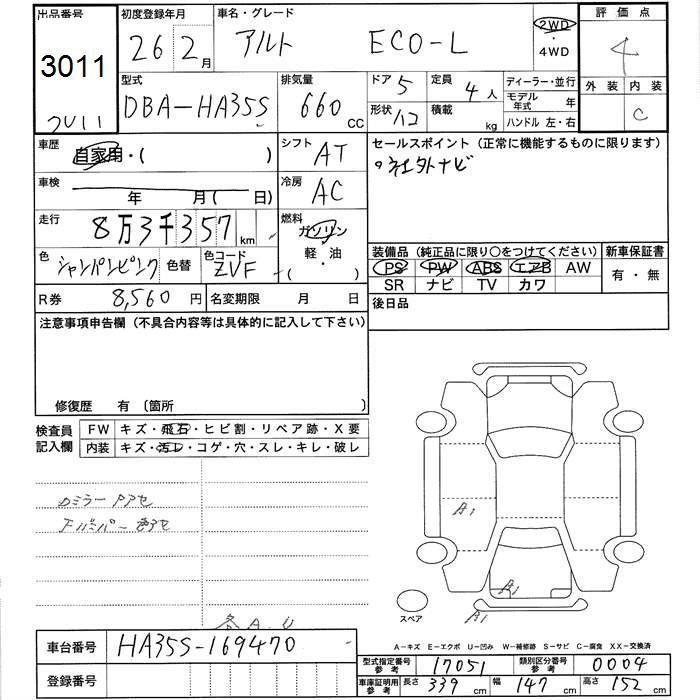 出品番号 初度登録年月 車名・グレード 評価点
3011 26 2月 アルト ECO-L 2WD・4WD 4
型式 排気量 ドア 5 定員 4人 ディーラー・並行 外装 内装
DBA-HA35S 660cc 形状 ハコ 積載 kg モデル年式 年 C
ハンドル 左・右
車歴 自家用・( ) シフト AT セールスポイント(正常に機能するものに限ります)
車検 年 月( 日) 冷房 AC ・社外ナビ
走行 8万3千357km 燃料 ガソリン
軽・油
・( )
色 シャンパンピンク 色替 色コード ZVF 装備品(純正品に限り○をつけてください) 新車保証書
PS PW ABS エアB AW 有・無
SR ナビ TV カワ
R券 8,560円 名変期限 月 日 後日品
注意事項申告欄(不具合内容等は具体的に記入して下さい)
修復歴 有〔箇所 〕
検査員記入欄 FW キズ・飛石・ヒビ割・リペア跡・X要
内装 キズ・汚レ・コゲ・穴・スレ・キレ・破レ
A1
A1
A1
スペア
各A.U
A-キズ E-エクボ U-凹み W-補修跡 S-サビ C-腐食 XX-交換済
車台番号 HA35S-169470
型式指定番号参考 17051 類別区分番号参考 0004
登録番号
車庫証明用参考 長さ 339 幅 147 高さ 152